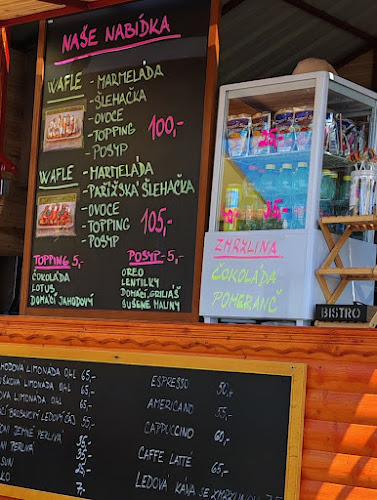 NAŠE NABÍDKA
WAFLE - MARMELÁDA
- ŠLEHAČKA
- OVOCE
- TOPPING 100,-
- POSYP
WAFLE - MARMELÁDA
- PAŘÍŽSKÁ ŠLEHAČKA
- OVOCE
- TOPPING 105,-
- POSYP
TOPPING 5,-
ČOKOLÁDA
LOTUS
DOMÁCÍ JAHODOVÝ
POSYP - 5,-
OREO
LENTILKY
DOMÁCÍ GRILIÁŠ
SUŠENÉ MALINY
35,-
ZMRZLINA
ČOKOLÁDA
POMERANČ
BISTRO
LIMONÁDA 0,4L 65,-
LIMONÁDA 0,4L 65,-
LIMONADA 0,4L 65,-
LEDOVÝ ČAJ 55,-
PERLIVÁ 35,-
PERLIVÁ 35,-
SUN 25,-
7,-
ESPRESSO 50,-
AMERICANO 55,-
CAPPUCCINO 60,-
CAFFE LATTÉ 65,-
LEDOVÁ KÁVA SE ZMRZLINOU